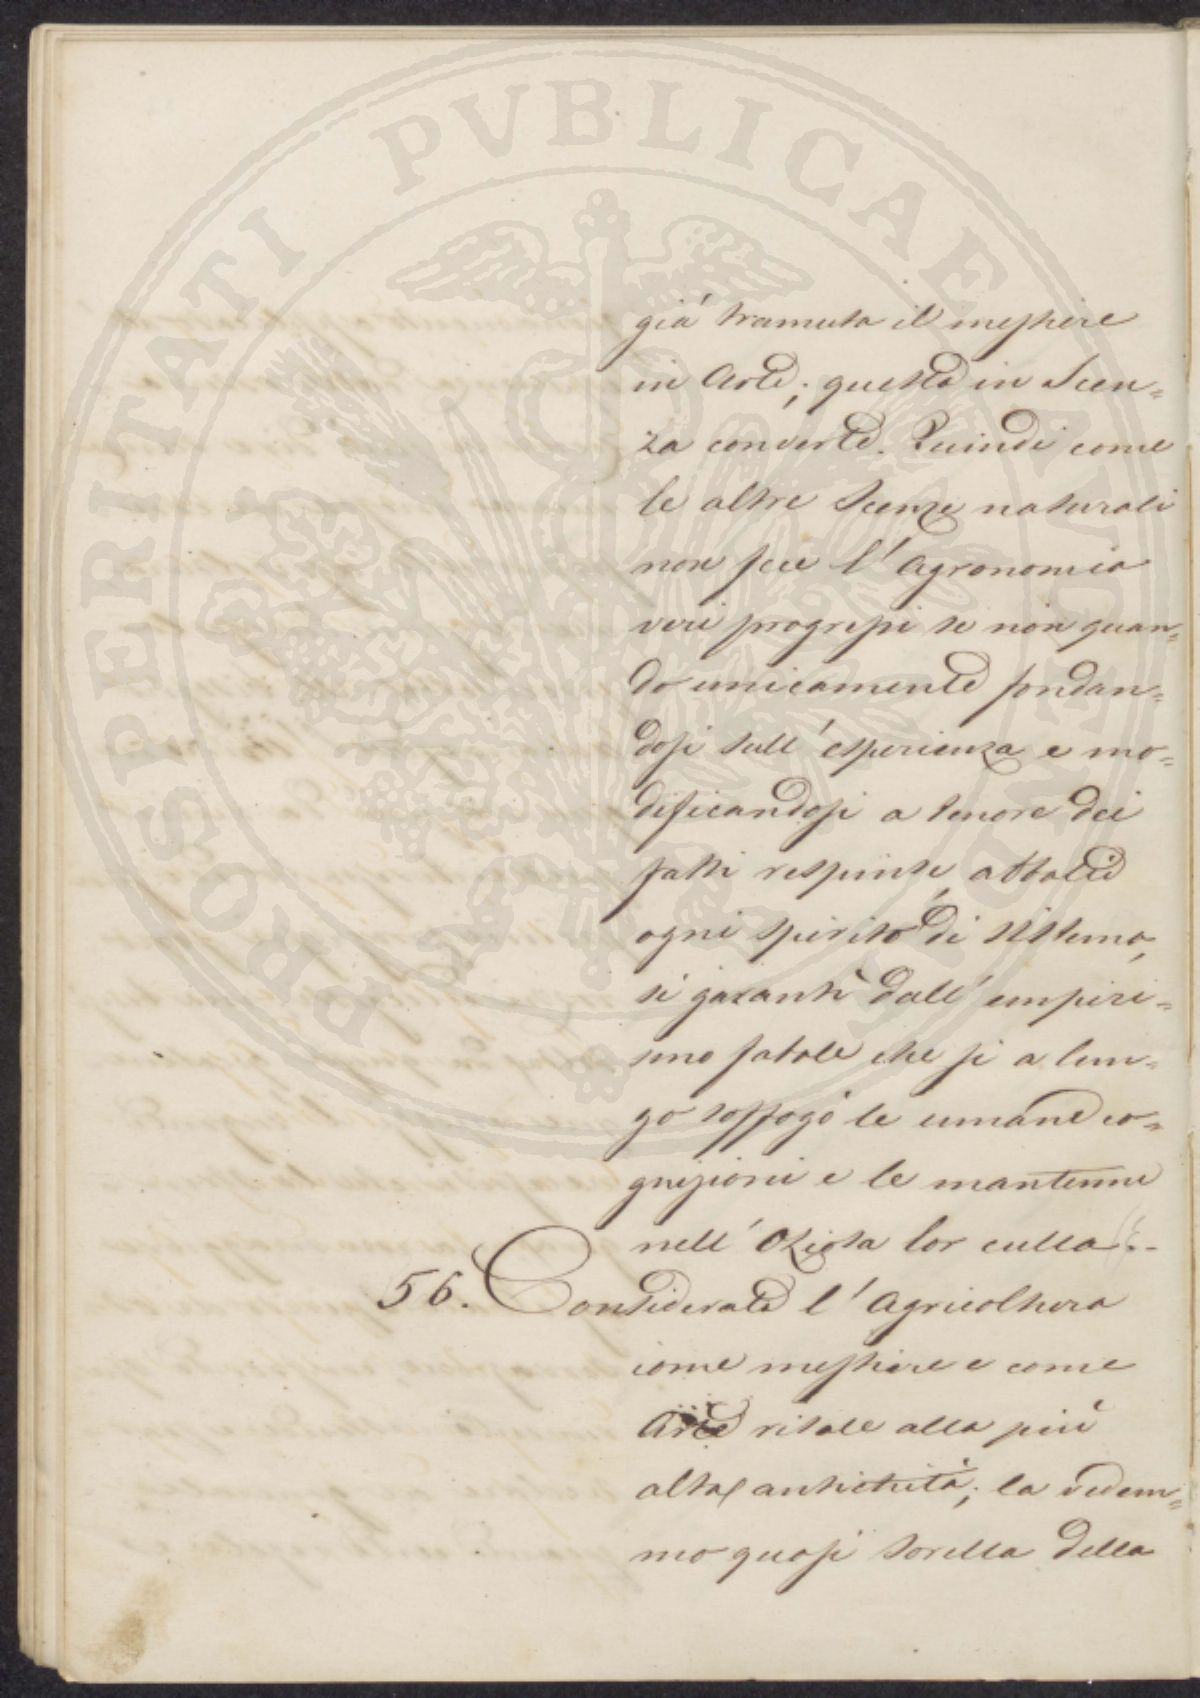 PROSPERITATI PVBLICAE AVGENDAE
già tramuta il mestiere
in Arte; questa in Scen=
za converte. Quindi come
le altre Scenze naturali
non fece l'Agronomia
veri progressi se non quan=
do unicamente fondan=
dosi sull'esperienza e mo=
dificandosi a tenore dei
fatti respinse, attalchè
ogni spirito di sistema,
si garantì dall'empiri=
smo fatale che sì a lun=
go soffogò le umane co=
gnizioni e le mantenne
nell'Oziosa lor culla.
56. Considerata l'Agricoltura
come mestiere e come
Arte risale alla più
alta antichità; la vedem=
mo quasi sorella della